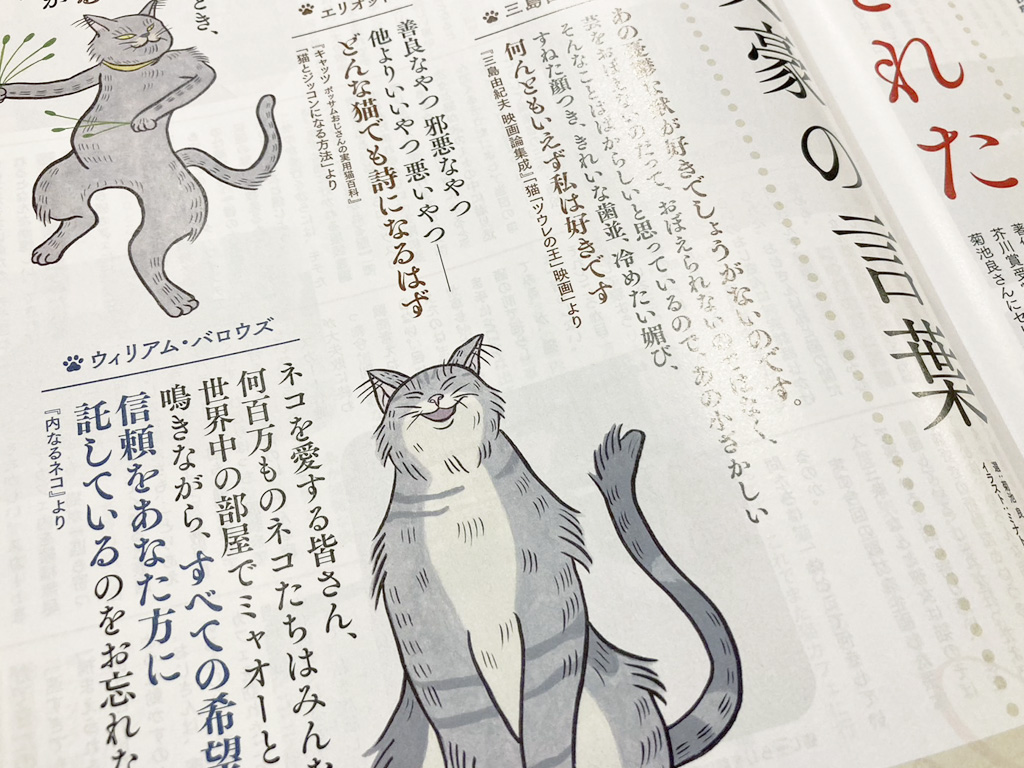 された
豪の言葉
芥川賞
菊池良さんに
イラスト
あの憂鬱な獣が好きでしょうがないのです。
芸をおぼえないのだって、おぼえられないのではなく、
そんなことはばからしいと思っているので、あの小ざかしい
すねた顔つき、きれいな歯並、冷めたい媚び、
何んともいえず私は好きです
『三島由紀夫 映画論集成』「猫「ツウレの王」映画」より
エリオット
善良なやつ 邪悪なやつ
他よりいいやつ 悪いやつ──
どんな猫でも詩になるはず
『キャッツ ポッサムおじさんの実用猫百科』
「猫とジッコンになる方法」より
とき、
ウィリアム・バロウズ
ネコを愛する皆さん、
何百万ものネコたちはみんな
世界中の部屋でミャオーと
鳴きながら、すべての希望
信頼をあなた方に
託しているのをお忘れな
『内なるネコ』より